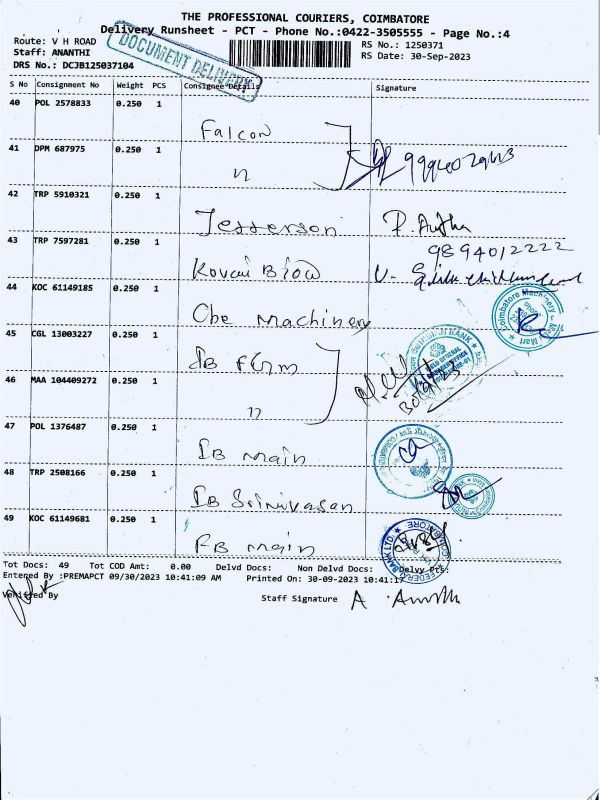 THE PROFESSIONAL COURIERS, COIMBATORE
Delivery Runsheet - PCT - Phone No.:0422-3505555 - Page No.:4
Route: V H ROAD
RS No.: 1250371
Staff: ANANTHI
RS Date: 30-Sep-2023
DRS No.: DCJB125037104
DOCUMENT DELIVERY
S No Consignment No Weight PCS Consignee Details Signature
40 POL 2578833 0.250 1
Falcon
41 DPM 687975 0.250 1
n
42 TRP 5910321 0.250 1
Jefferson
43 TRP 7597281 0.250 1
9894012222
Kovai Bloo
44 KOC 61149185 0.250 1
Cbe Machinery
Coimbatore Machinery
Mart
45 CGL 13003227 0.250 1
IB FGM
46 MAA 104409272 0.250 1
n
47 POL 1376487 0.250 1
IB main
48 TRP 2508166 0.250 1
IB Srinivasan
49 KOC 61149681 0.250 1
FB main
FEDERAL BANK LTD
COIMBATORE
Tot Docs: 49 Tot COD Amt: 0.00 Delvd Docs: Non Delvd Docs: Delvy Pts:
Entered By :PREMAPCT 09/30/2023 10:41:09 AM Printed On: 30-09-2023 10:41:17
Verified By
Staff Signature